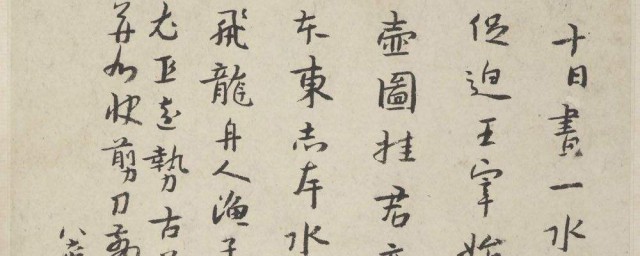 十日畫一水
促迫王宰始
壺圖挂君
本東赤岸水
飛龍舟人漁子
尤工遠勢古
并州快剪刀剪
八